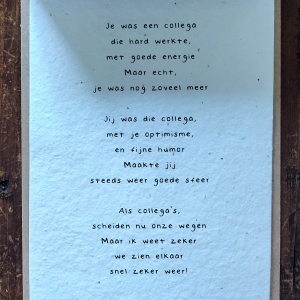 Je was een collega
die hard werkte,
met goede energie
Maar echt,
je was nog zoveel meer
Jij was die collega,
met je optimisme,
en fijne humor
Maakte jij
steeds weer goede sfeer
Als collega's,
scheiden nu onze wegen
Maar ik weet zeker
we zien elkaar
snel zeker weer!